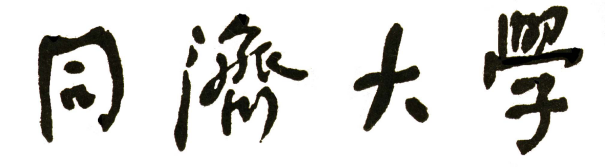 同濟大學